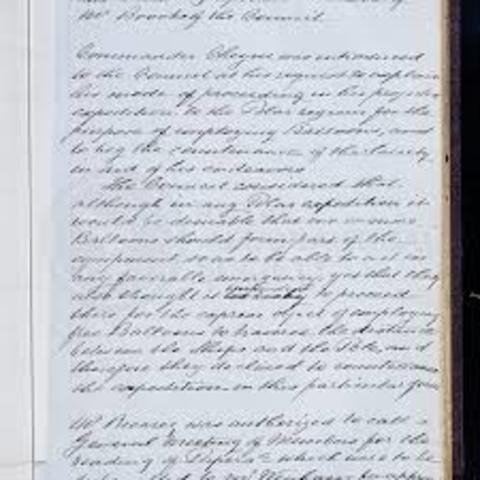 Mr Brooke of the Council.
Commander Cheyne was introduced
to the Council at his request to explain
his mode of proceeding in his projected
expedition to the Polar regions for the
purpose of employing Balloons, and
to beg the countenance of the Society
in aid of his endeavors
The Council considered that
although in any Polar expedition it
would be desirable that one or more
Balloons should form part of the
equipment so as to be able to act in
any favorable emergency, yet that they
also thought it to proceed
there for the express object of employing
free Balloons to traverse the distance
between the Ships and the Pole, and
therefore they declined to countenance
the expedition in this particular form
Mr Brearey was authorized to call a
General Meeting of Members for the
reading of Papers which were to be
to Mr